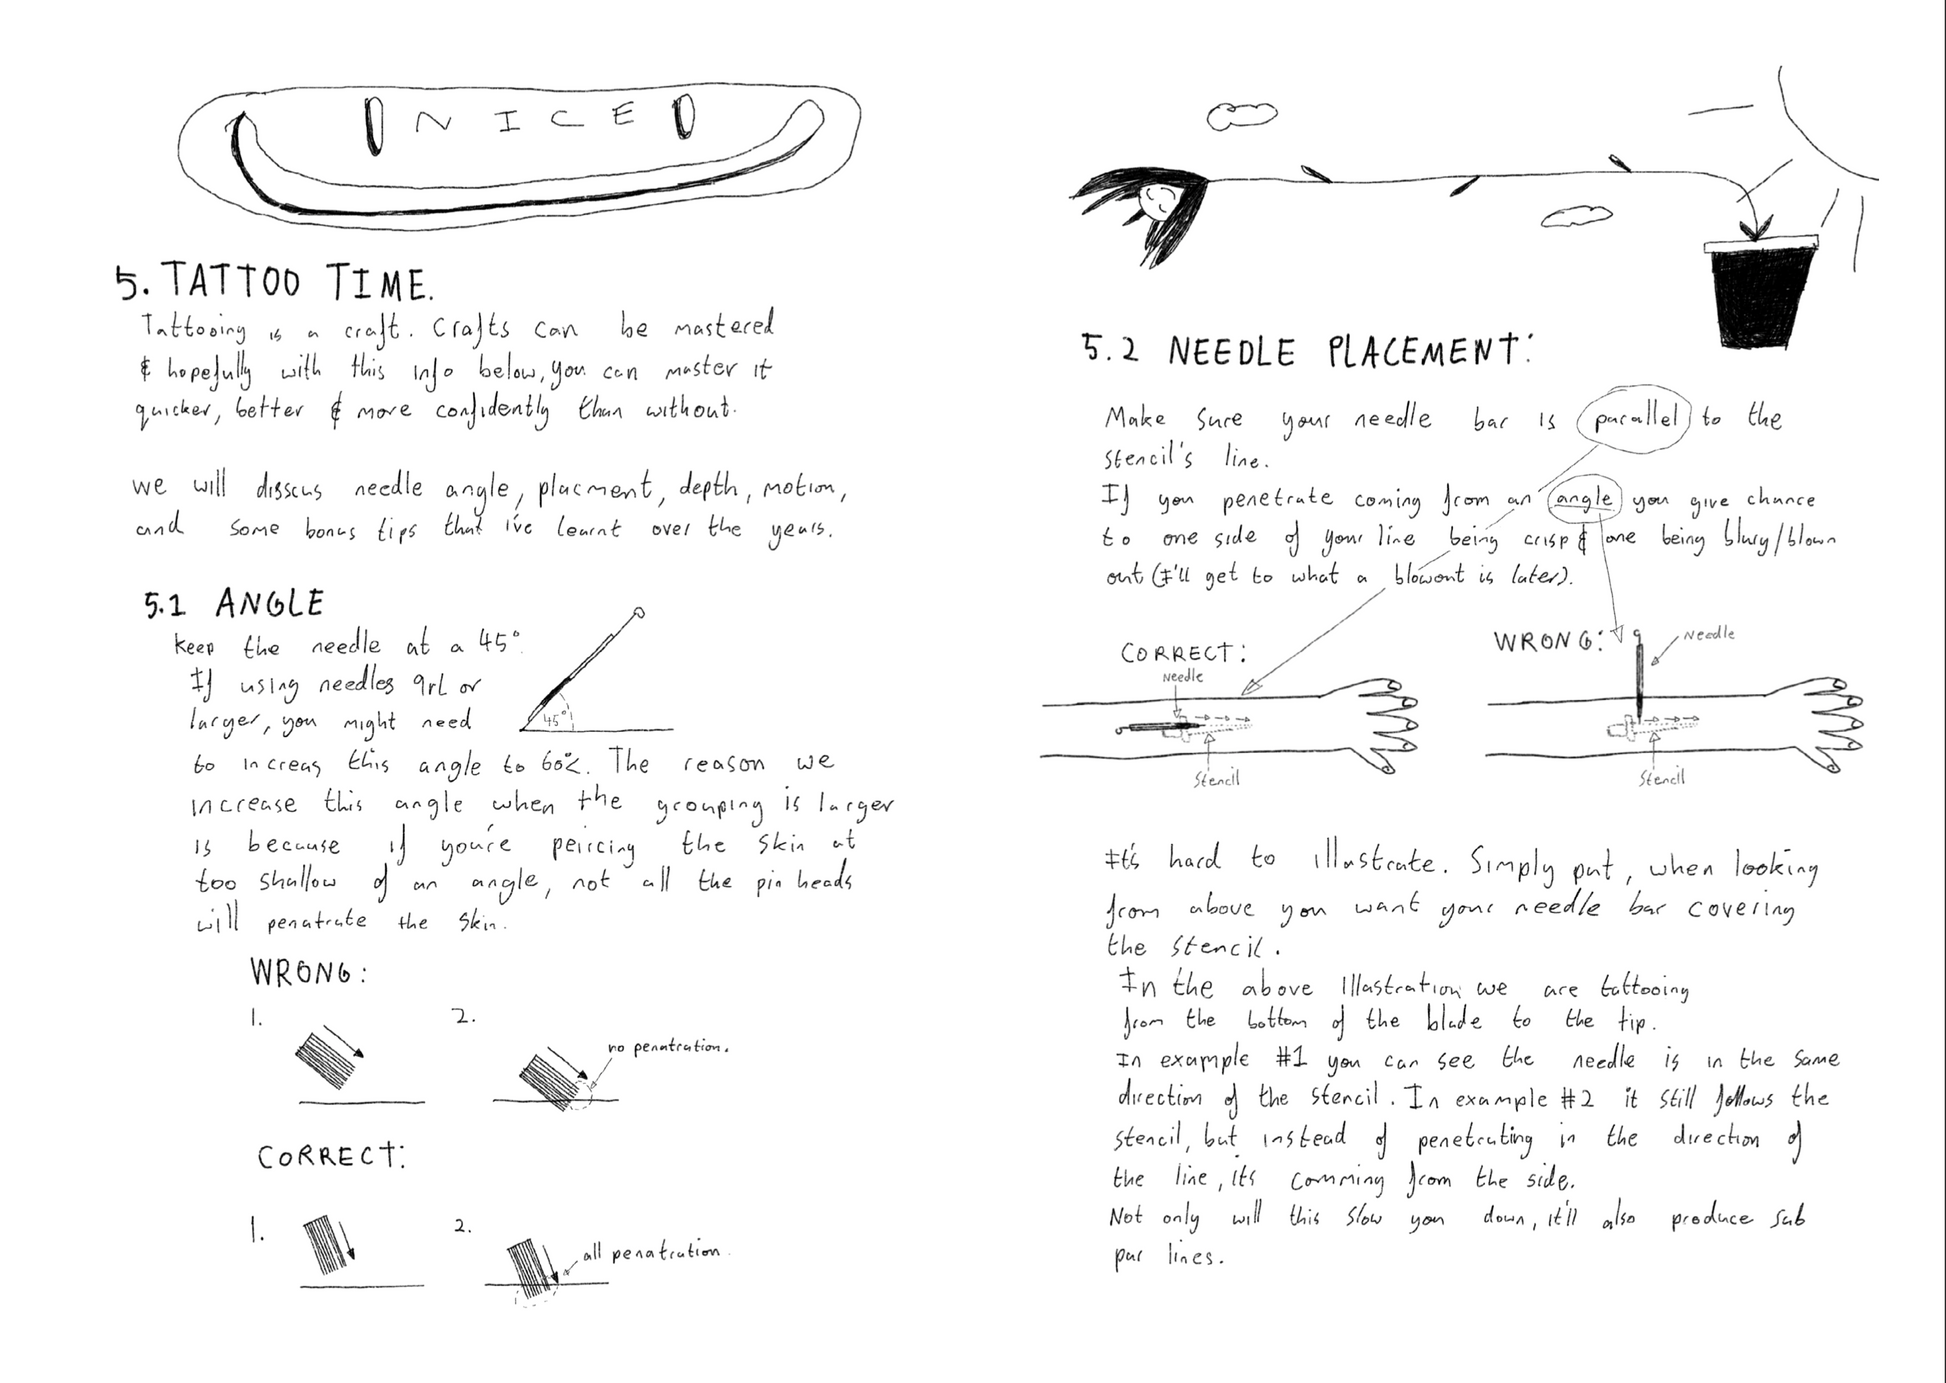 NICE
5. TATTOO TIME.
Tattooing is a craft. Crafts can be mastered
& hopefully with this info below, you can master it
quicker, better & more confidently than without.
we will disscus needle angle, placment, depth, motion,
and some bonus tips that i've learnt over the years.
5.1 ANGLE
Keep the needle at a 45°.
If using needles 9rL or
larger, you might need
45°
to increas this angle to 60%. The reason we
increase this angle when the grouping is larger
is because if you're peircing the skin at
too shallow of an angle, not all the pin heads
will penatrate the skin.
WRONG:
1.
2.
no penatration.
CORRECT:
1.
2.
all penatration.
5.2 NEEDLE PLACEMENT:
Make sure your needle bar is parallel to the
stencil's line.
If you penetrate coming from an angle you give chance
to one side of your line being crisp & one being blury/blown
out (I'll get to what a blowout is later).
CORRECT:
Needle
Stencil
WRONG:
Needle
Stencil
It's hard to illustrate. Simply put, when looking
from above you want your needle bar covering
the stencil.
In the above illustration we are tattooing
from the bottom of the blade to the tip.
In example #1 you can see the needle is in the same
direction of the stencil. In example #2 it still follows the
stencil, but instead of penetrating in the direction of
the line, its comming from the side.
Not only will this slow you down, it'll also produce sub
par lines.